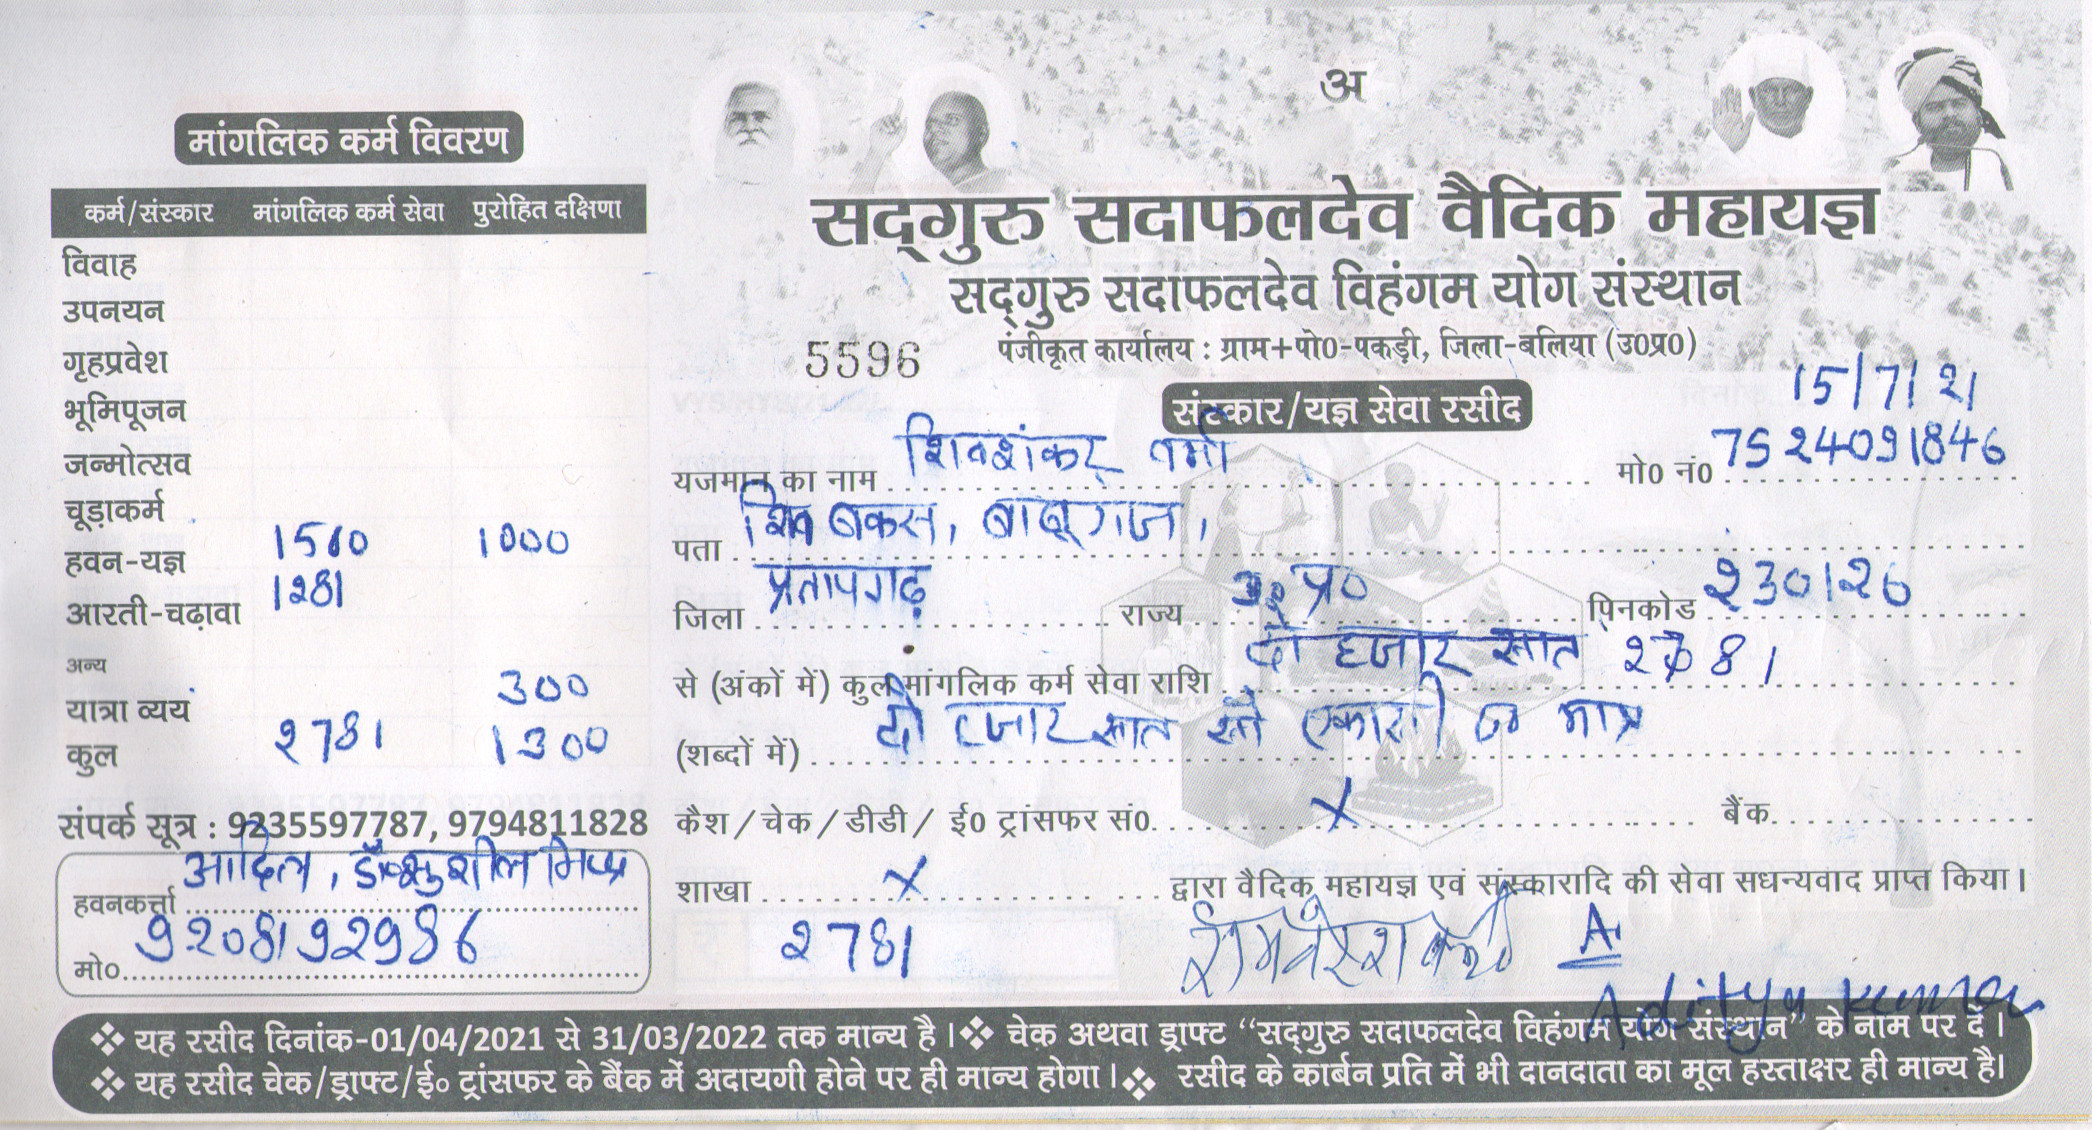 अ
मांगलिक कर्म विवरण
कर्म/संस्कार मांगलिक कर्म सेवा पुरोहित दक्षिणा
विवाह
उपनयन
गृहप्रवेश
भूमिपूजन
जन्मोत्सव
चूड़ाकर्म
हवन-यज्ञ 1500 1000
आरती-चढ़ावा 1281
अन्य
यात्रा व्ययं 300
कुल 2781 1300
संपर्क सूत्र : 9235597787, 9794811828
हवनकर्त्ता आदित्य, डॉ० सुशील मिश्र
मो० 9208192986
सद्गुरु सदाफलदेव वैदिक महायज्ञ
सद्गुरु सदाफलदेव विहंगम योग संस्थान
5596 पंजीकृत कार्यालय : ग्राम+पो0-पकड़ी, जिला-बलिया (उ0प्र0)
15/7/21
संस्कार/यज्ञ सेवा रसीद
यजमान का नाम शिवशंकर वर्मा मो0 नं0 7524091846
पता शिव बकस, बाबूगंज,
जिला प्रतापगढ़ राज्य उ० प्र० पिनकोड 230126
से (अंकों में) कुल मांगलिक कर्म सेवा राशि दो हजार सात 2781
(शब्दों में) दो हजार सात सौ एकासी रु० मात्र
कैश / चेक / डीडी / ई0 ट्रांसफर सं0. X बैंक
शाखा X द्वारा वैदिक महायज्ञ एवं संस्कारादि की सेवा सधन्यवाद प्राप्त किया।
2781
A
Aditya Kumar
❖ यह रसीद दिनांक-01/04/2021 से 31/03/2022 तक मान्य है। ❖ चेक अथवा ड्राफ्ट “सद्गुरु सदाफलदेव विहंगम योग संस्थान” के नाम पर दें।
❖ यह रसीद चेक/ड्राफ्ट/ई० ट्रांसफर के बैंक में अदायगी होने पर ही मान्य होगा। ❖ रसीद के कार्बन प्रति में भी दानदाता का मूल हस्ताक्षर ही मान्य है।